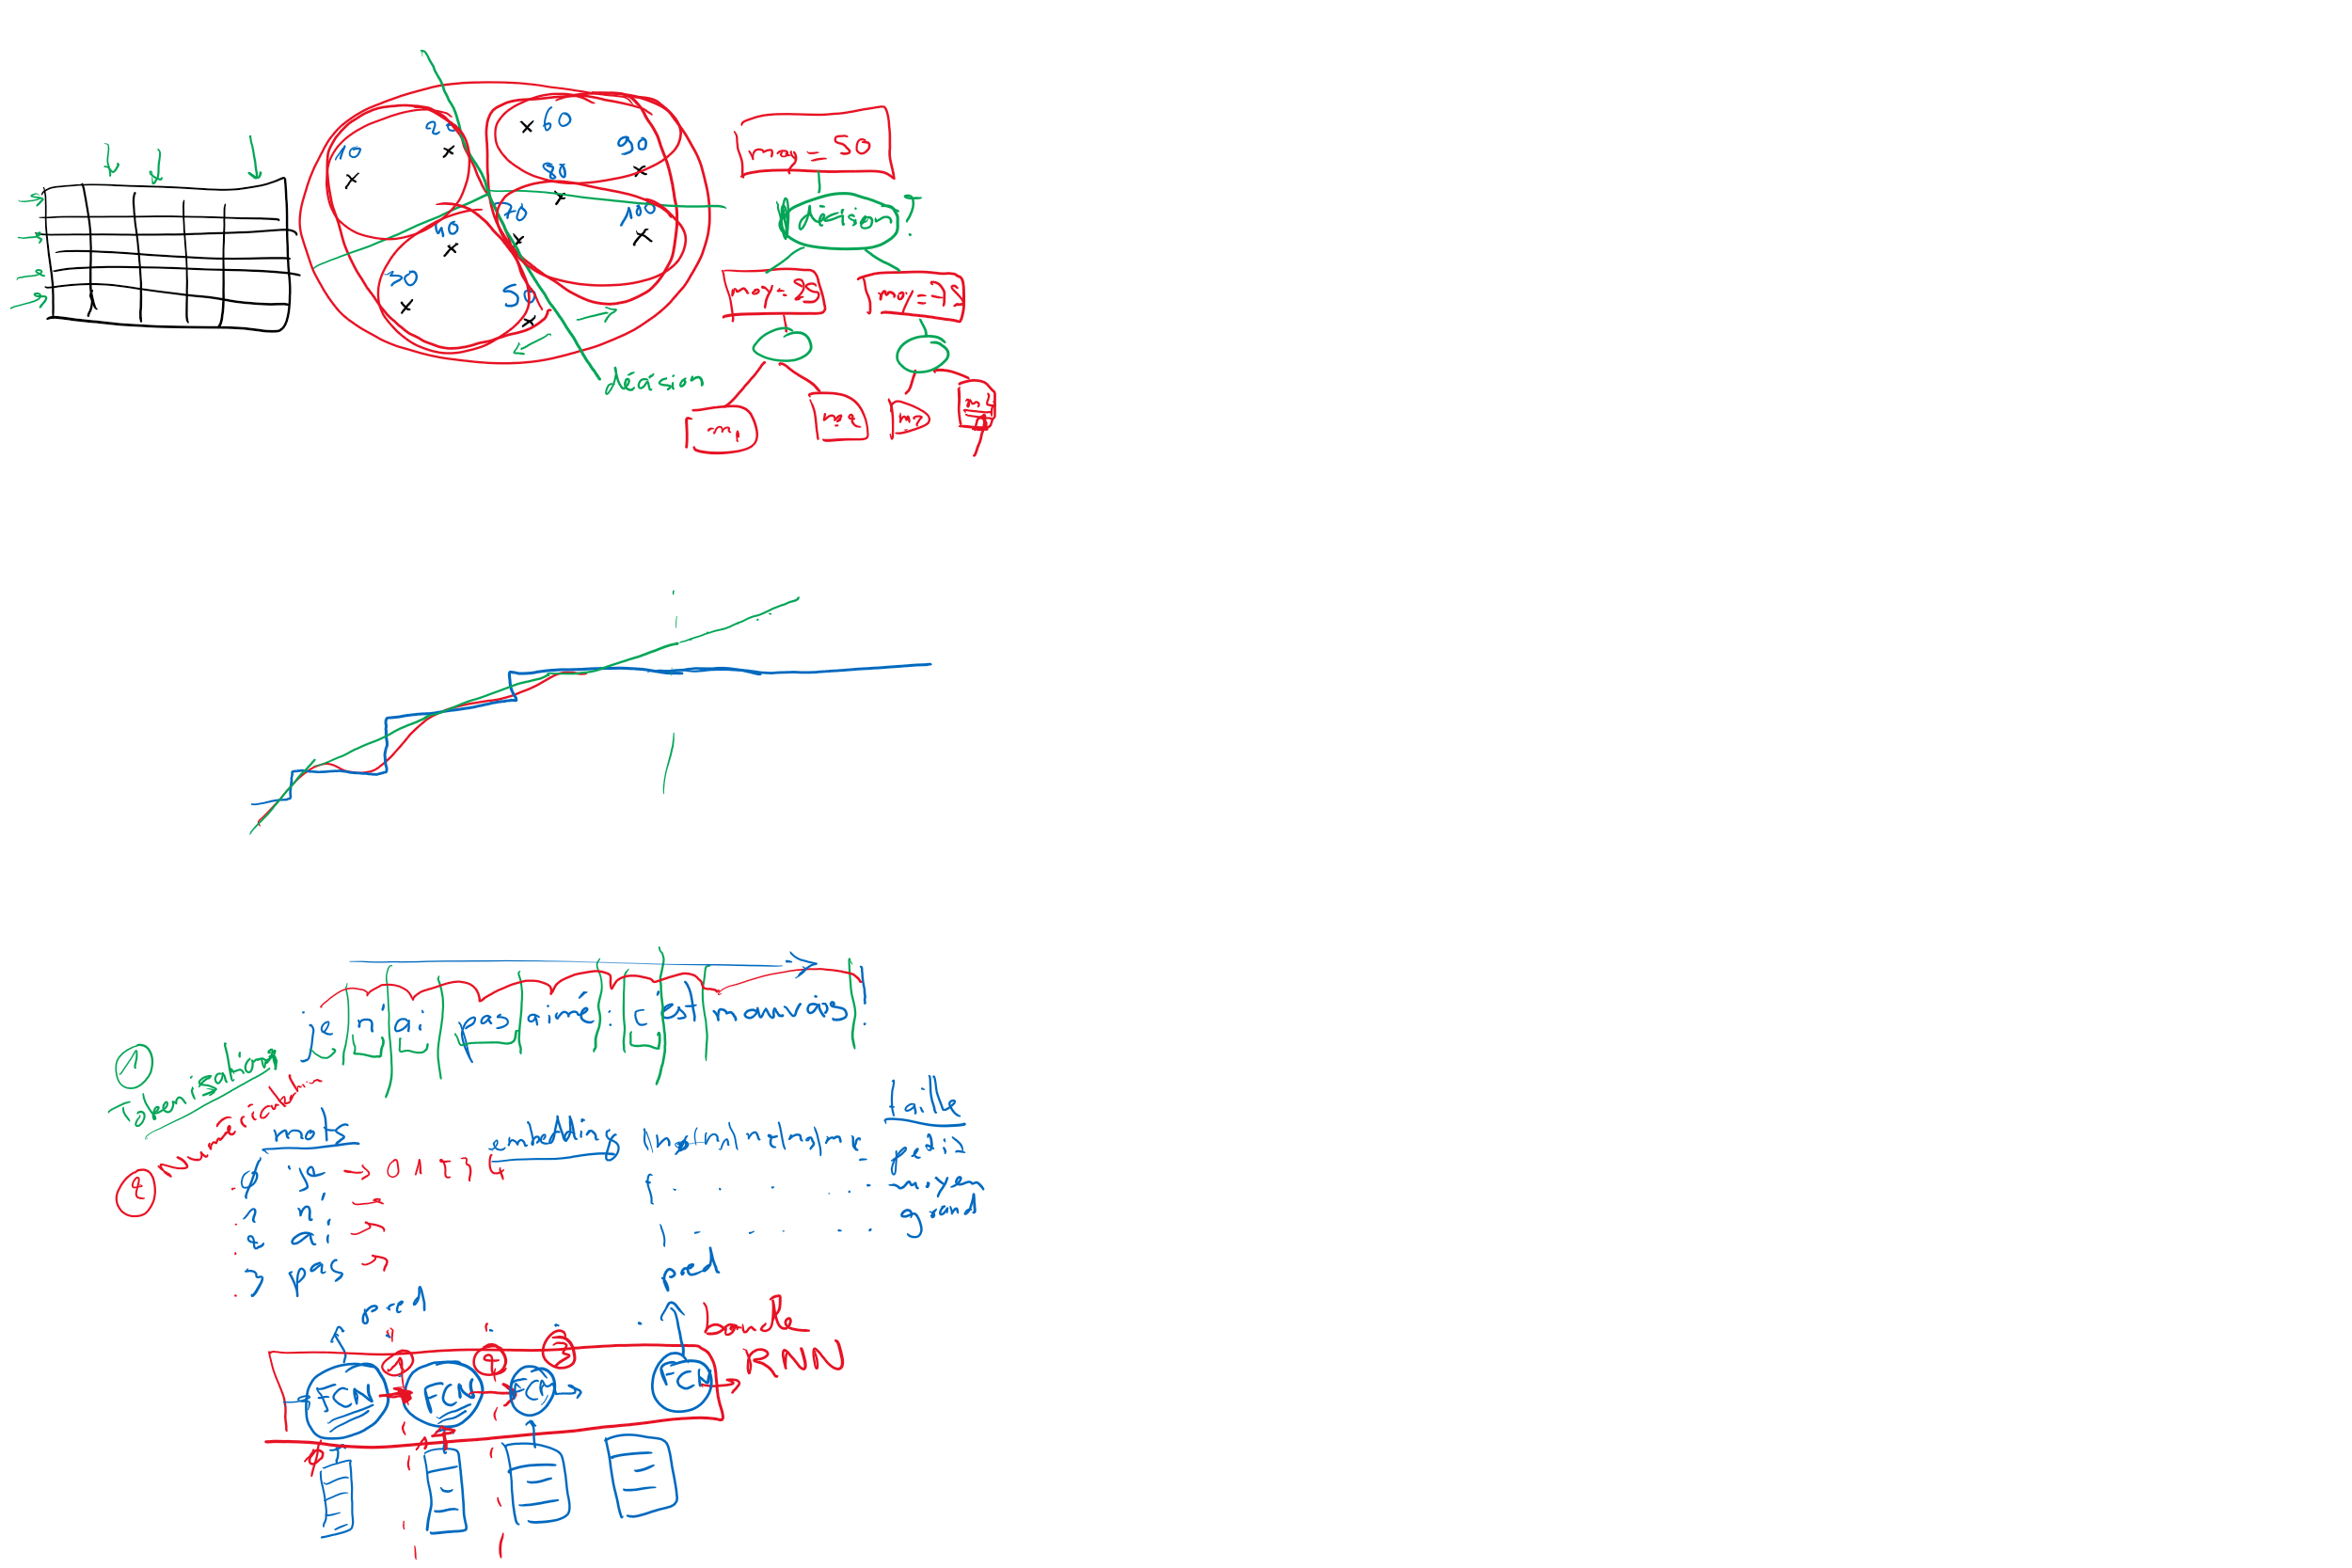 20 60
10 90
80
70 100
40
30 50
moy = 50
décision ?
moy = 25 moy = 75
décision
m1 m2 m3 m4
je n'ai pas aimé : c'est mauvais !
① Tokenisation
② Numérisation
mots
0 je → 0 1 2 3 4
1 n'
2 ai
3 pas
embedding
taille
petit
moyen
grand
pred pred
boucle
RNN
1 2 3
FCN FCN FCN FCN